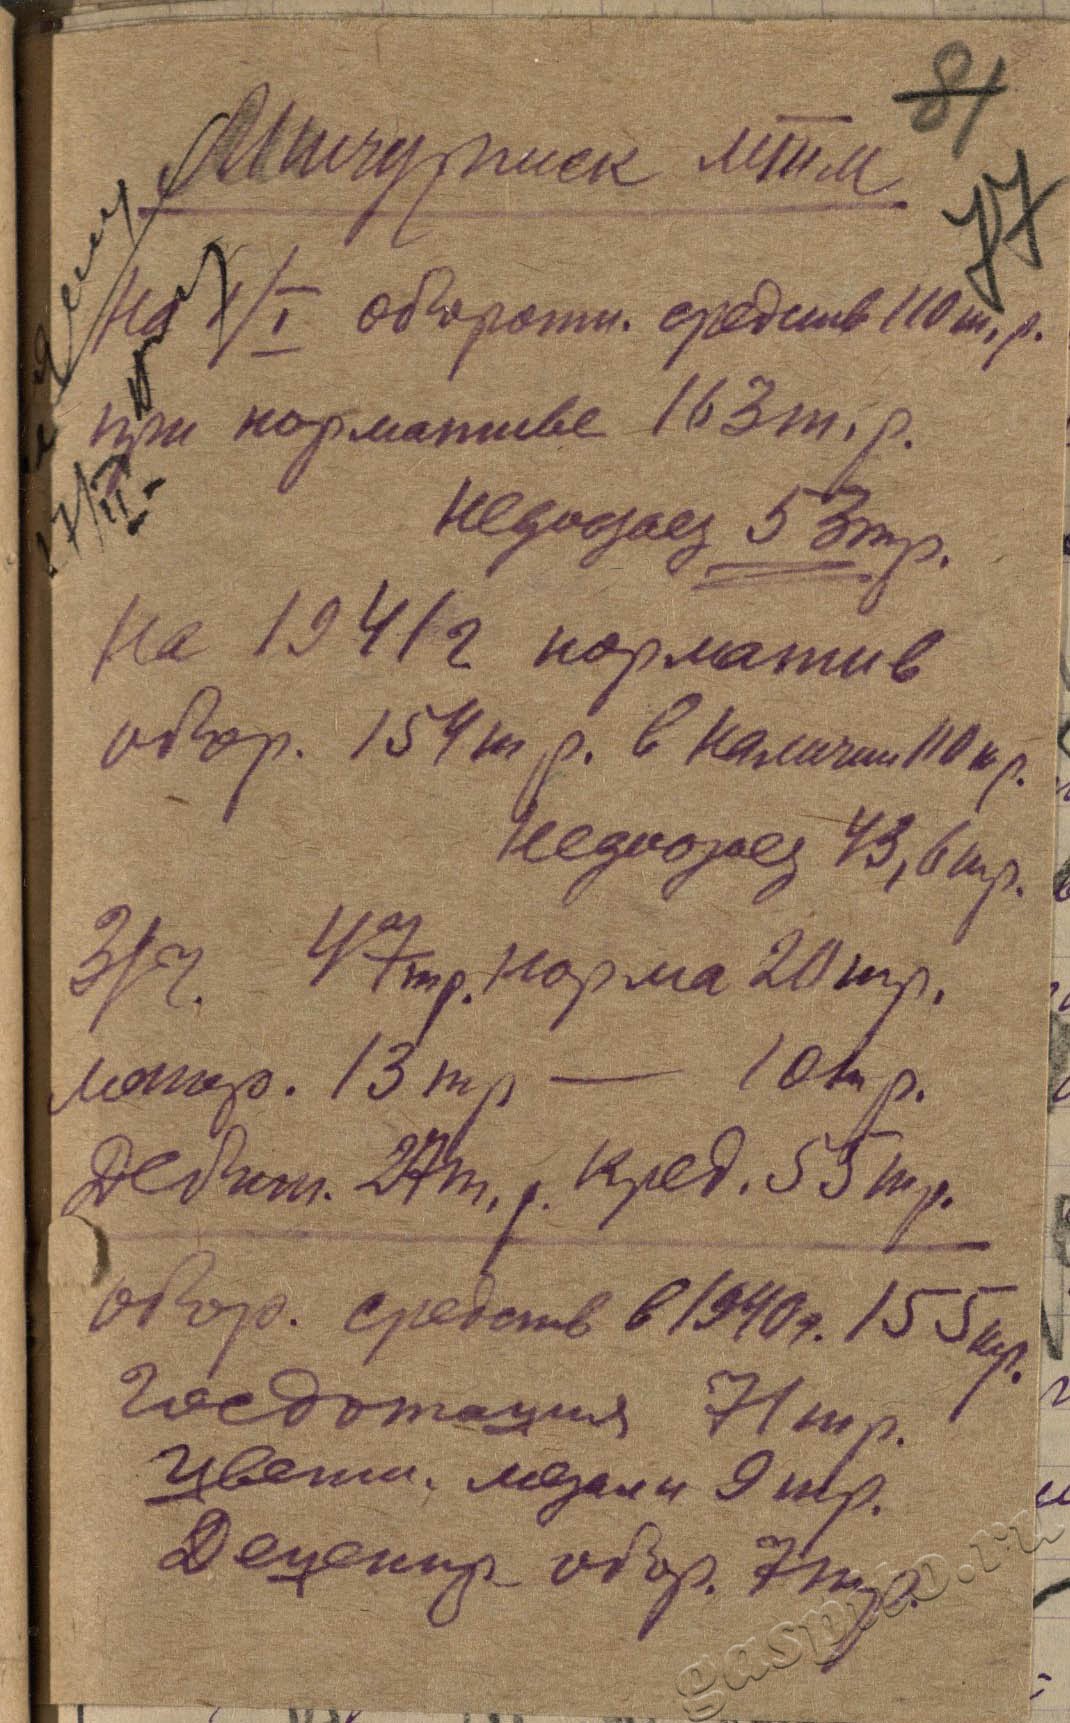 81
77
Мичуринск МТМ
На 1/I оборотн. средств 110 т. р.
при нормативе 163 т. р.
Недостает 53 тр.
На 1941 г норматив
обор. 154 т р. в наличии 110 тр.
Недостает 43,6 тр.
З/ч. 47 тр. Норма 20 тр.
матер. 13 тр — 10 тр.
Дебит. 27 т. р. Кред. 55 тр.
обор. средств в 1940 г. 155 тр.
Госдотация 71 тр.
Цветн. 9 тр.
обор. 7 тр.
17/II-
gaspito.ru